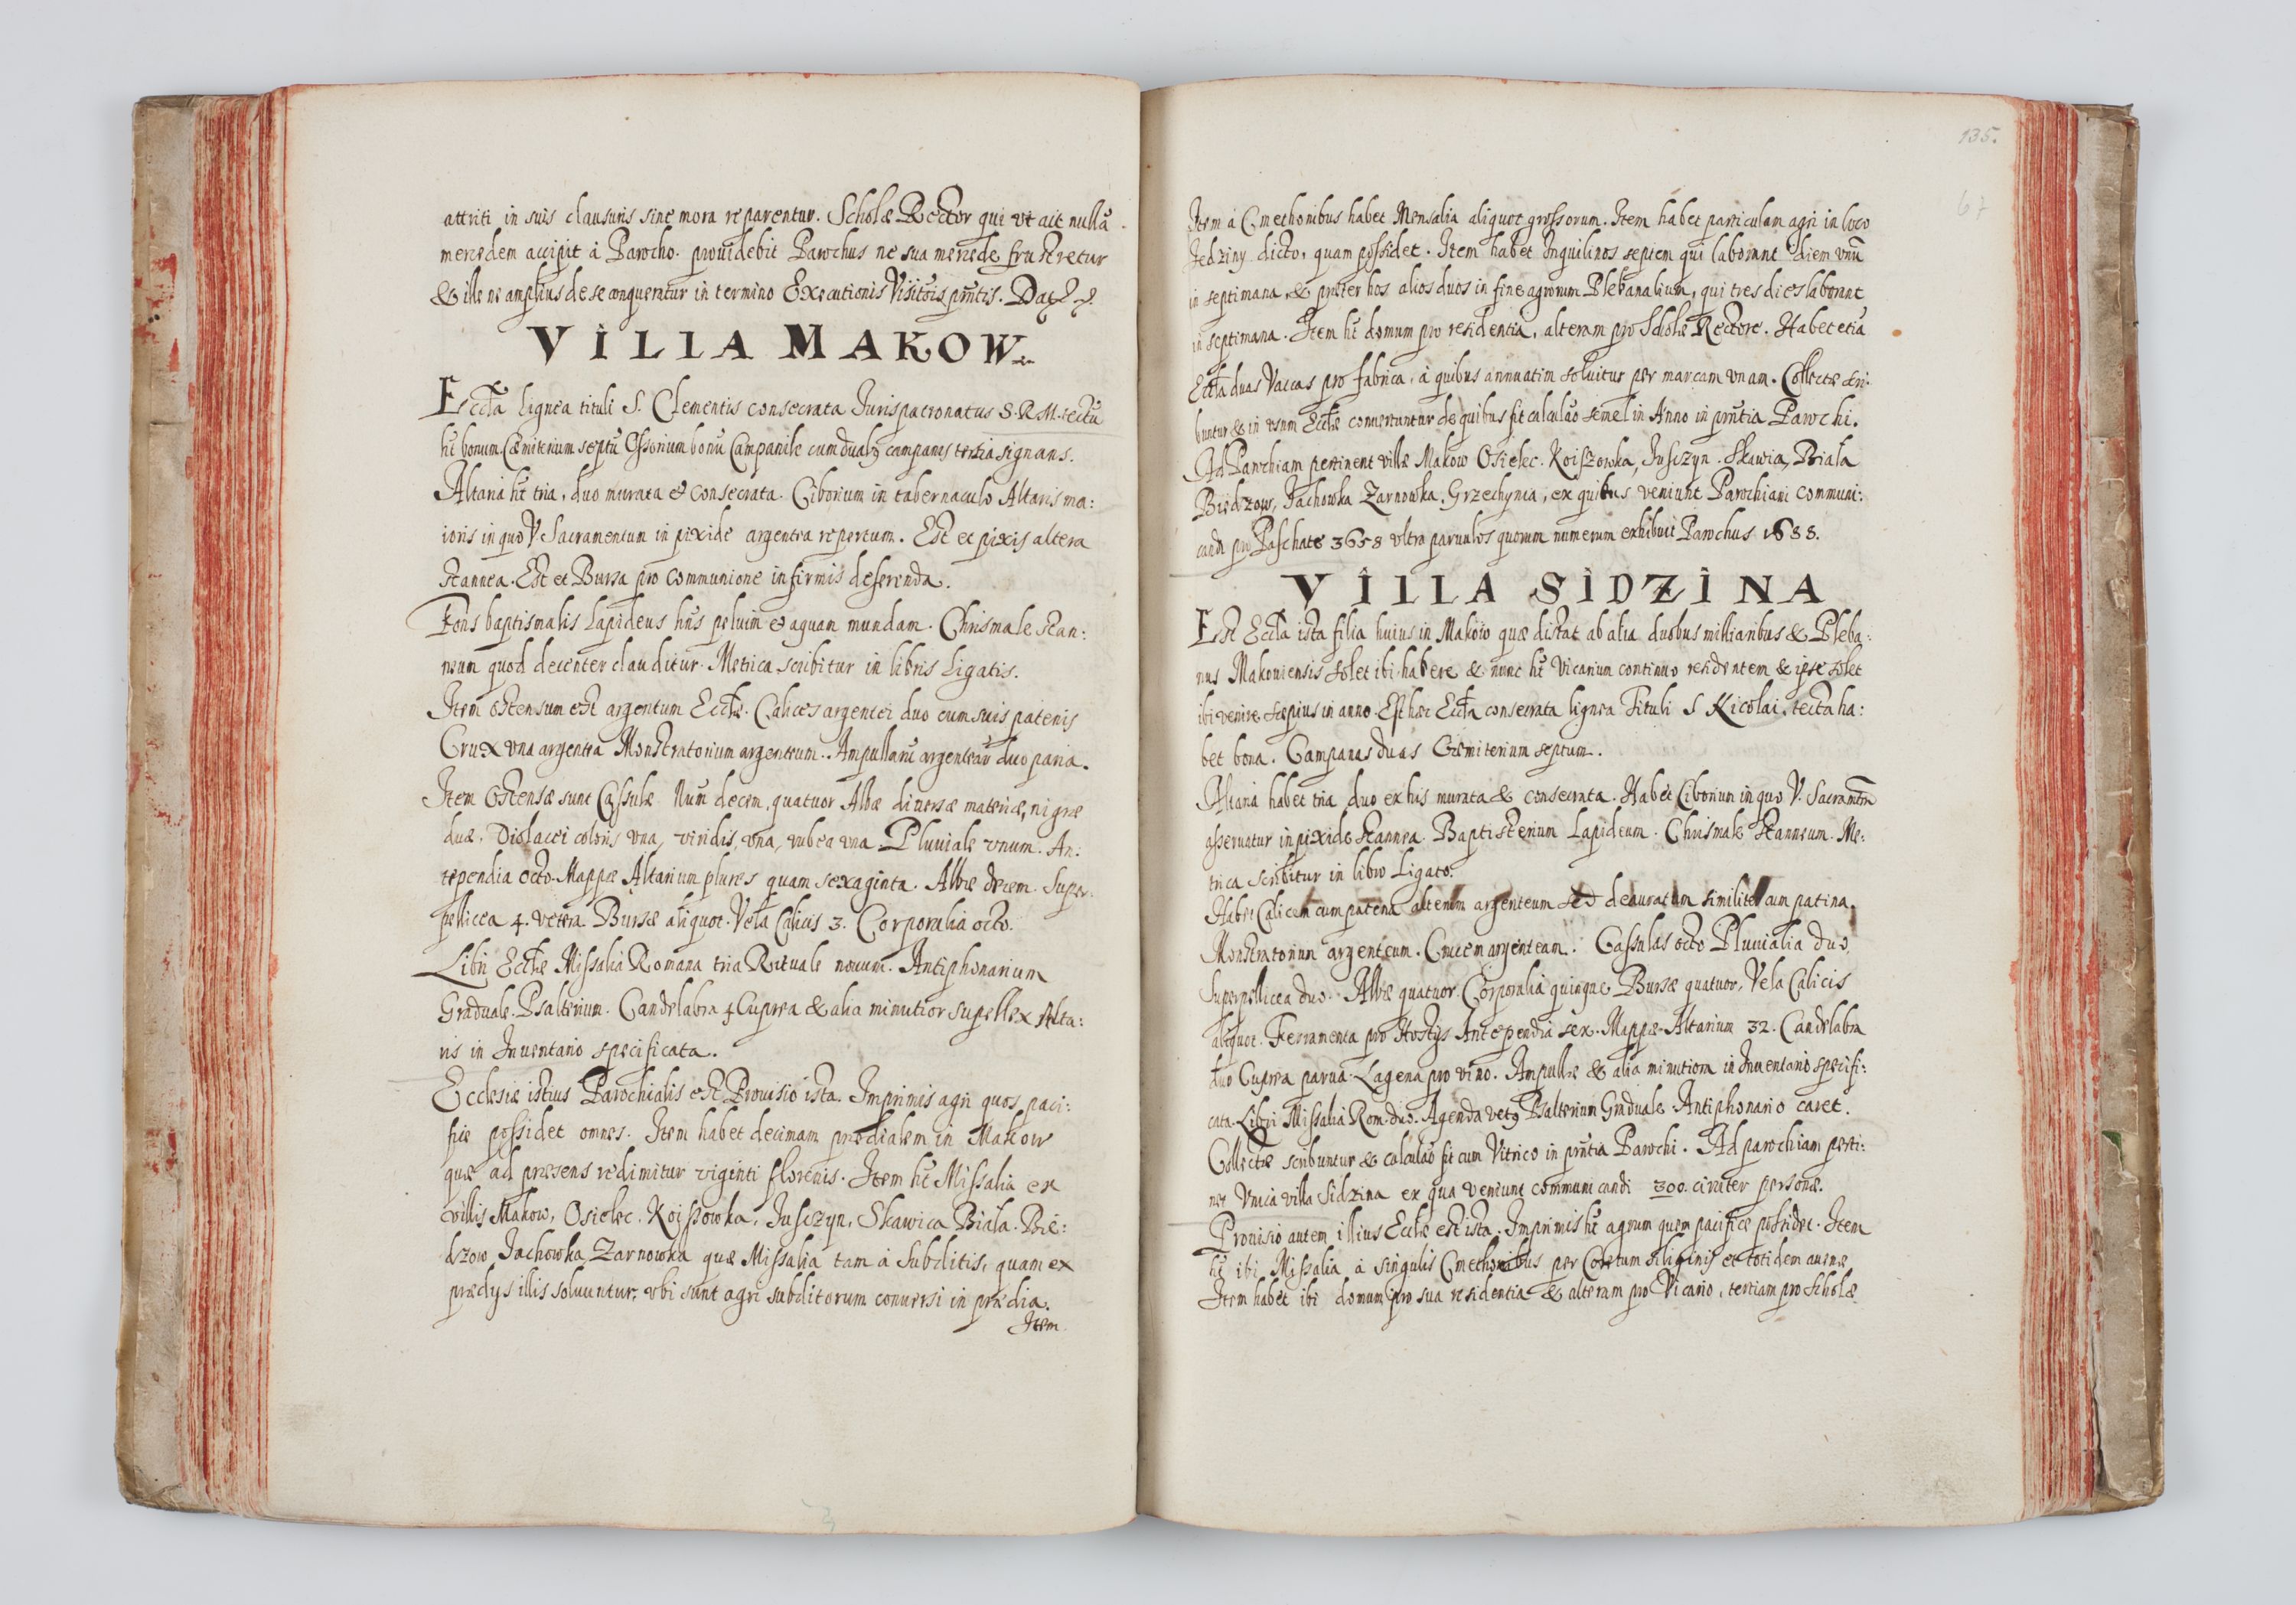 attriti in suis clausuris sine mora reparentur. Scholæ Rector qui vt ait nullã
mercedem accipit à Parocho. prouidebit Parochus ne sua mercede frustretur
& ille ne amplius de se conqueratur in termino Executionis Visitõis pñtis. Dat
VILLA MAKOW
Eccła Lignea tituli S. Clementis consecrata Jurispatronatus S.R.M. tectũ
ht̃ bonum Cæmiterium septũ Ossorium bonũ Campanile cum duabꝫ campanis tertia signans.
Altaria ht̃ tria, duo murata & consecrata. Ciborium in tabernaculo Altaris ma:
ioris in quo V Sacramentum in pixide argentea repertum. Est et pixis altera
stannea. Est et Bursa pro communione infirmis deferenda.
Fons baptismalis Lapideus hñs peluim & aquam mundam. Chrismale stan:
neum quod decenter clauditur. Metrica scribitur in libris Ligatis.
Item ostensum est argentum Ecctæ. Calices argentei duo cum suis patenis
Crux vna argentea Monstratorium argenteum. Ampullarũ argentearũ duo paria.
Item Ostensæ sunt Cassulæ Num decem, quatuor Albæ diuersæ materiæ, nigræ
duæ. Violacei coloris vna, viridis, vna, rubea vna. Pluuiale vnum. An:
tependia octo. Mappæ Altarium plures quam sexaginta. Albæ decem. Super:
pellicea 4. vetera Bursæ aliquot. Vela Calicis 3. Corporalia octo.
Libri Ecctæ Missalia Romana tria Rituale nouum. Antiphonarium
Graduale. Psalterium. Candelabra 4 Cuprea & alia minutior supellex Alta:
ris in Inuentario specificata.
Ecclesiæ istius Parochialis est Prouisio ista. Imprimis agri quos paci:
fice possidet omnes. Item habet decimam prædialem in Makow
quæ ad præsens redimitur viginti florenis. Item ht̃ Missalia ex
villis Makow, Osielec. Koiszowka, Jusczyn, Skawica Biała. Bie:
dzow Jachowka, Zarnowka quæ Missalia tam à Subditis, quam ex
prædys illis soluuntur, vbi sunt agri subditorum conuersi in prædia.
Item
135.
67
Item à Cmethonibus habet Mensalia aliquot grossorum. Item habet particulam agri in loco
Jedziny dicto, quam possidet. Item habet Inquilinos septem qui laborant diem vnũ
in septimana, & præter hos alios duos in fine agrorum Plebanalium, qui tres dies laborant
in septimana. Item ht̃ domum pro residentia, alteram pro Scholæ Rectore. Habet etiã
Eccła duas Vaccas pro fabrica, à quibus annuatim soluitur per marcam vnam. Collectæ scri:
buntur & in vsum Ecctæ conuertuntur de quibus fit calculaõ semel in Anno in pñtia Parochi.
Ad Parochiam pertinent villæ Makow Osielec. Koiszowka, Jusczyn. Skawica, Biała
Biedzow, Jachowka Zarnowka, Grzechynia, ex quibus veniunt Parochiani communi:
candi pro Paschate 3658 vltra paruulos quorum numerum exhibuit Parochus 1688.
VILLA SIDZINA
Est Eccła ista filia huius in Makow quæ distat ab alia duobus milliaribus & Pleba:
nus Makouiensis solet ibi habere & nunc ht̃ Vicarium continuo residentem & ipse solet
ibi venire sæpius in anno. Est hæc Eccła consecrata lignea Tituli S Nicolai, tecta ha:
bet bona. Campanas duas Cæmiterium septum.
Altaria habet tria duo ex his murata & consecrata. Habet Ciborium in quo V. Sacramtm̃
asseruatur in pixide stannea. Baptisterium Lapideum. Chrismale stanneum. Me:
trica scribitur in libro Ligato.
Habet Calicem cum patena alterum argenteum sed deauratum similiter cum patina.
Monstratorium argenteum. Crucem argenteam. Cassulas octo Pluuialia duo
Superpellicea duo. Albæ quatuor. Corporalia quinque Bursæ quatuor, Vela Calicis
aliquot. Ferramenta pro Hostys Antependia sex. Mappæ Altarium 32. Candelabra
duo Cuprea parua. Lagena pro vino. Ampullæ & alia minutiora in Inuentario specifi:
cata. Libri Missalia Rom. duo. Agenda vetꝫ Psalterium Graduale. Antiphonario caret.
Collectæ scribuntur & calculaõ fit cum Vitrico in pñtia Parochi. Ad parochiam perti:
net Vnica villa Sidzina ex qua veniunt communicandi 300. circiter personæ.
Prouisio autem illius Ecctæ est ista. Imprimis ht̃ agrum quem pacifice possidet. Item
ht̃ ibi Missalia à singulis Cmethonibus per Coretum siliginis et totidem auenæ
Item habet ibi domum pro sua residentia & alteram pro Vicario, tertiam pro Scholæ